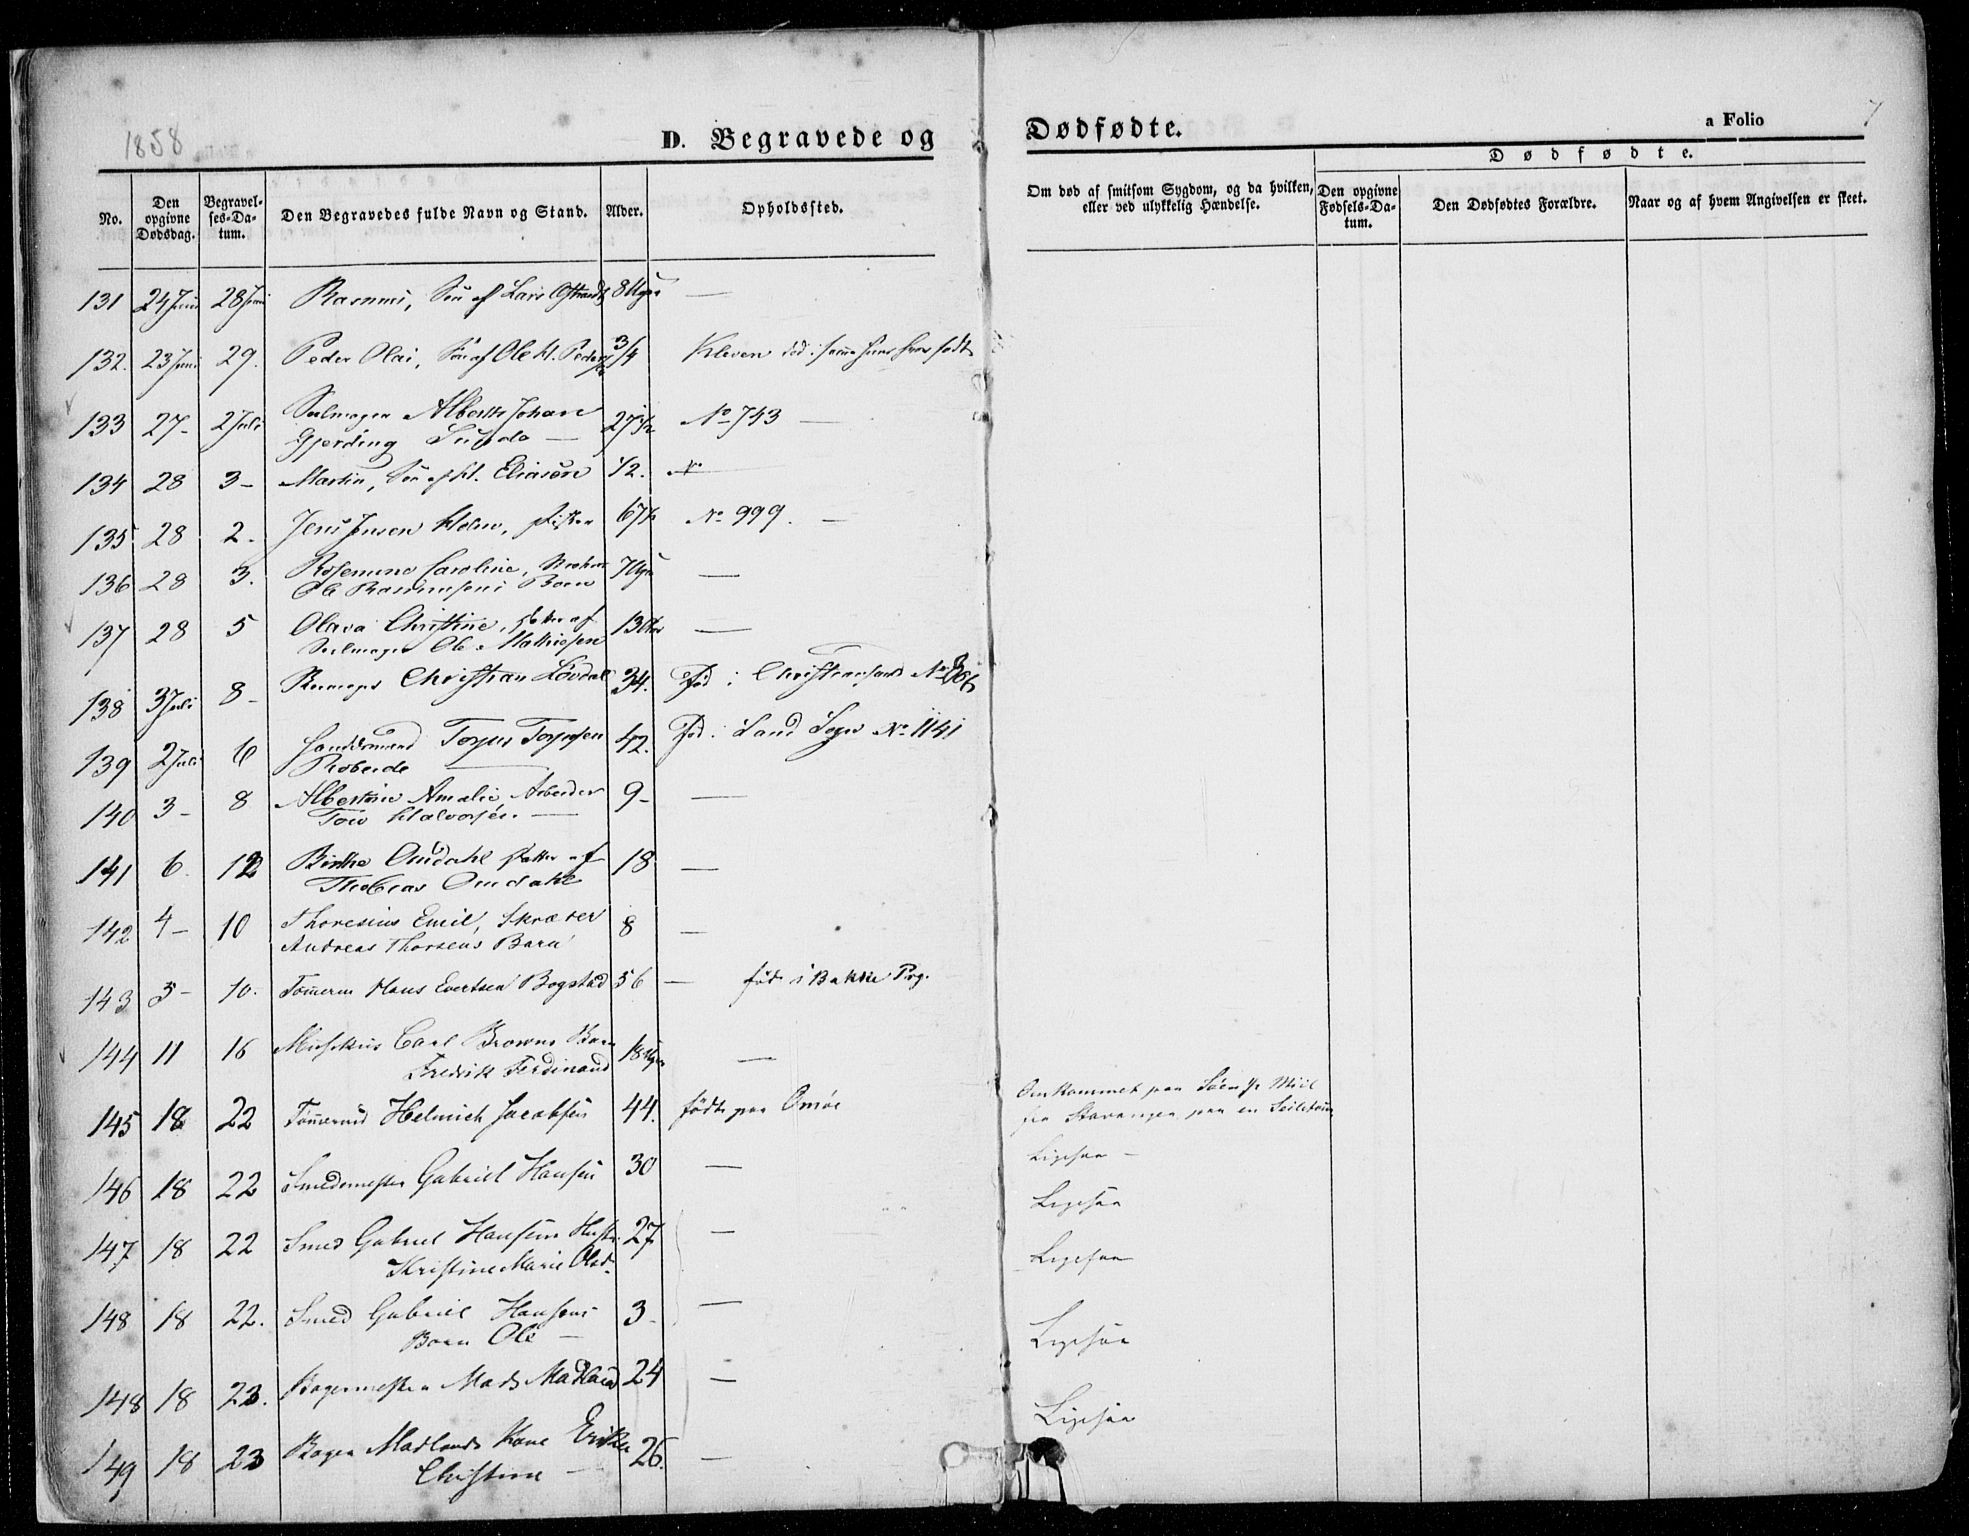 1858
D. Begravede og Dødfødte.
a Folio 7
No.
Den opgivne Dødsdag.
Begravelses-Datum.
Den Begravedes fulde Navn og Stand.
Alder.
Opholdssted.
Om død af smitsom Sygdom, og da hvilken, eller ved ulykkelig Hændelse.
Dødfødte.
Den opgivne Fødsels-Datum.
Den Dødfødtes Forældre.
Naar og af hvem Angivelsen er skeet.
131 24 Juni 28 Juni Rasmus, Søn af Lars 8 Uger —
132. 23 Juni 29. Peder Olai, Søn af Ole 3/4 Kleven
133 27- 2 Juli Seilmager Alberth Johan 27 1/2 No 743 —
Gjerding —
134 28 3- Martin, Søn af H. Eliasen 1/2. No —
135 28 2. Jens Jensen Holm, Fisker 67 1/2 No 999. —
136 28 3. Rosemine Caroline, 7 Uger —
Ole Rasmussens Barn
137 28 5 Olava Christine, Datter af 13 —
Seilmager Ole Mathiesen
138 3 Juli 8- Christian Løvdal 34. Død i Christiansand No
139 2 Juli 6 Torjus Torjusen 42. Sogn No 1141
—
140 3- 8 Albertine Amalie, Arbeider 9- —
Tore Halvorsen. —
141 6. 12 Birthe Omdahl Datter af 18 —
Thobias Omdahl
142 4- 10 Thoresius Emil, Skræder 8 —
Andreas Thorsens Barn
143 5- 10. Tømerm Hans Evertsen Bogstad 56 — født i Bakke Prg.
144 11 16 Musikus Carl Browns Barn 18 Uger —
Fredrik Ferdinand
145 18 22 Tømermd Helmich Jacobsen 44. født paa Omøe Omkommet paa Søen 1/2 Miil
fra Stavanger paa en Seiletour
146 18 22 Smedemester Gabriel Hansen 30 — Ligesaa —
147 18 22 Smed Gabriel Hansens Hustr. 27 — Ligesaa
Kristine Marie Olsd. Ligesaa
148 18 22. Smed Gabriel Hansens 3- —
Barn Ole — Ligesaa
148 18 23. Bagermester Mads Madland 24 —
Ligesaa
149 18 23 Bager Madlands Kone Erikka 26. —
Christine —